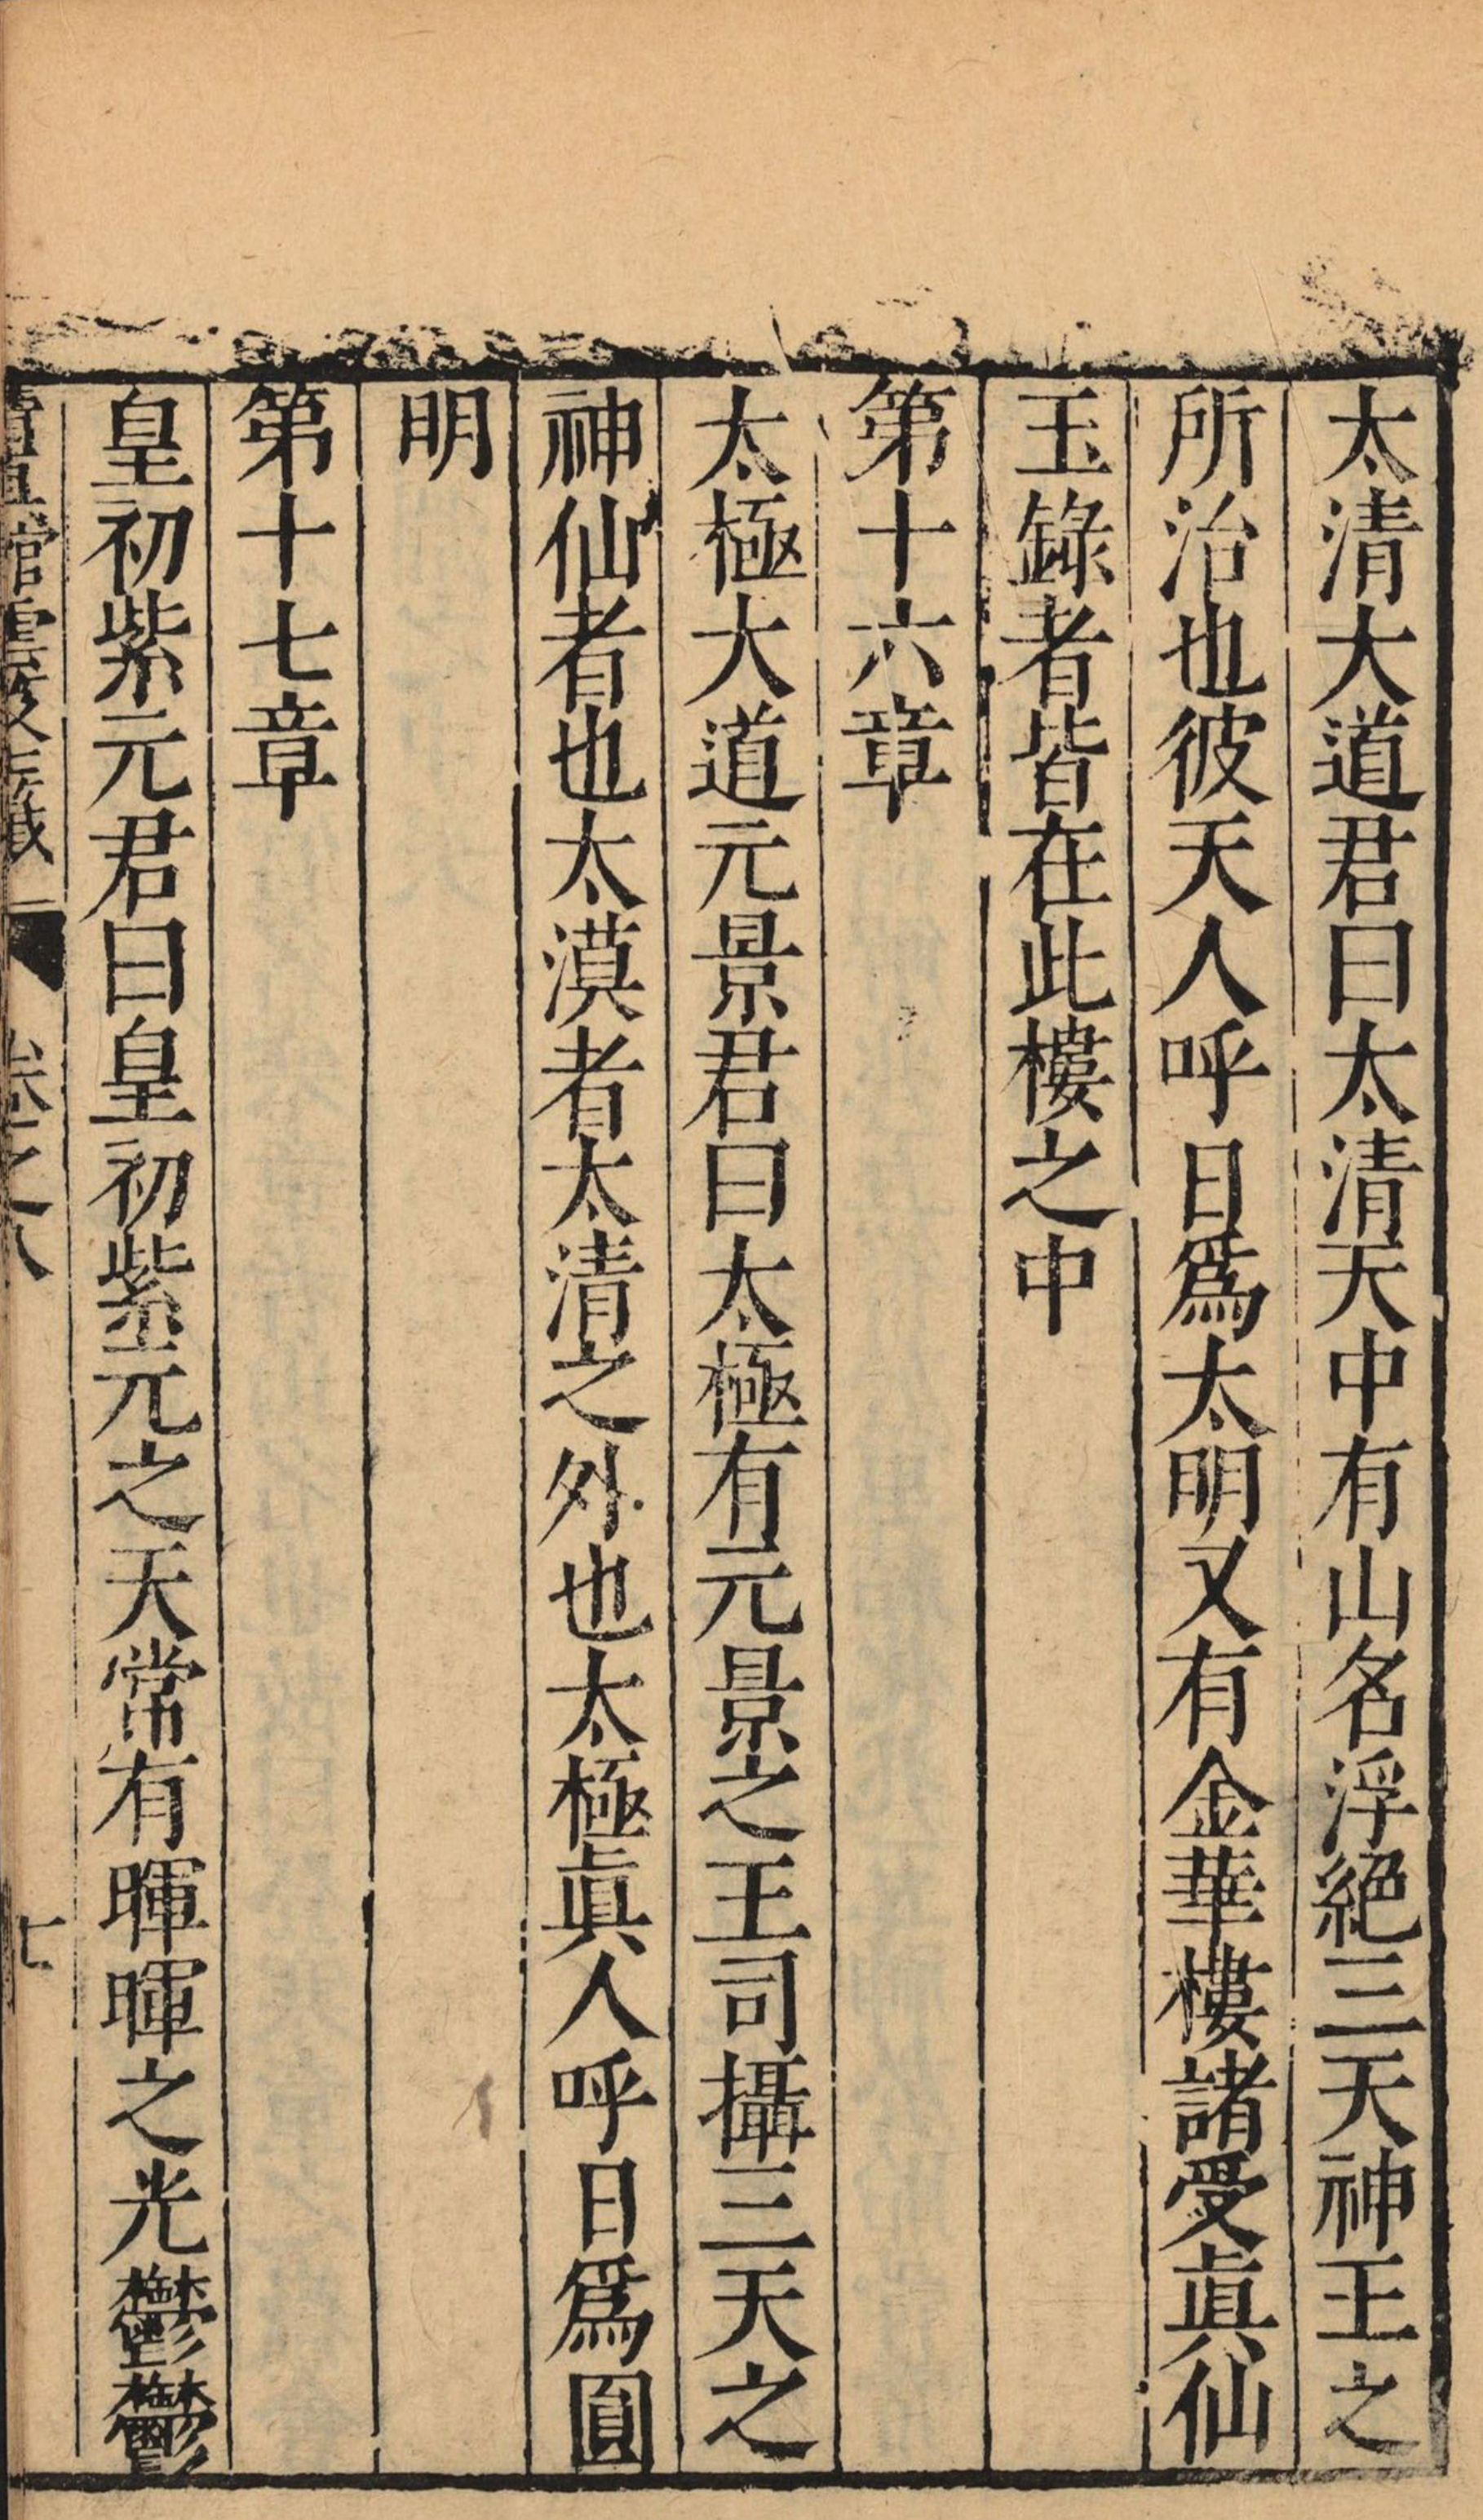 太清大道君曰太清天中有山名浮絕三天神王之
所治也彼天人呼日爲太明又有金華樓諸受眞仙
玉錄者皆在此樓之中
第十六章
太極大道元景君曰太極有元景之王司攝三天之
神仙者也太漠者太清之外也太極眞人呼日爲圓
明
第十七章
皇初紫元君曰皇初紫元之天常有暉暉之光鬱鬱
卷之八
七